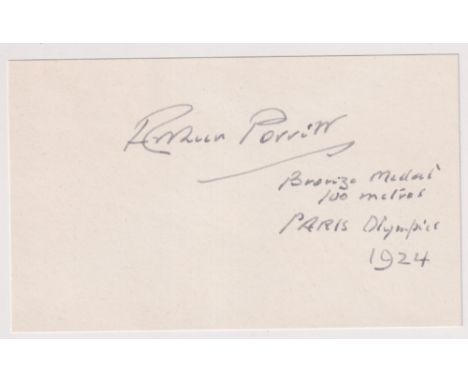 Arthur Porritt
Bronze Medal
100 metres
PARIS Olympics
1924